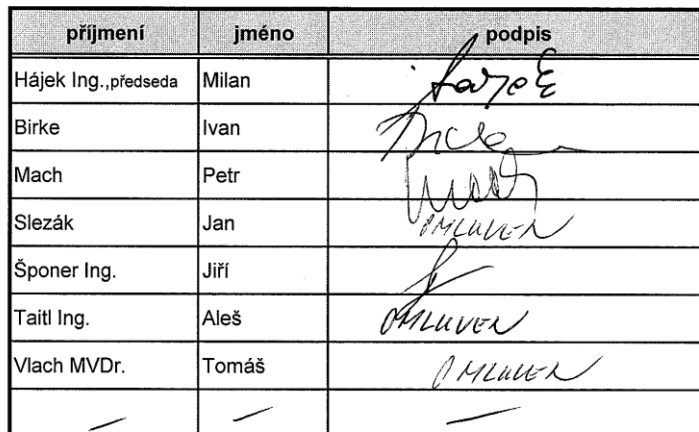 příjmení jméno podpis
Hájek Ing.,předseda Milan Hájek
Birke Ivan Birke
Mach Petr Mach
Slezák Jan OMLUVEN
Šponer Ing. Jiří
Taitl Ing. Aleš OMLUVEN
Vlach MVDr. Tomáš OMLUVEN
— — —